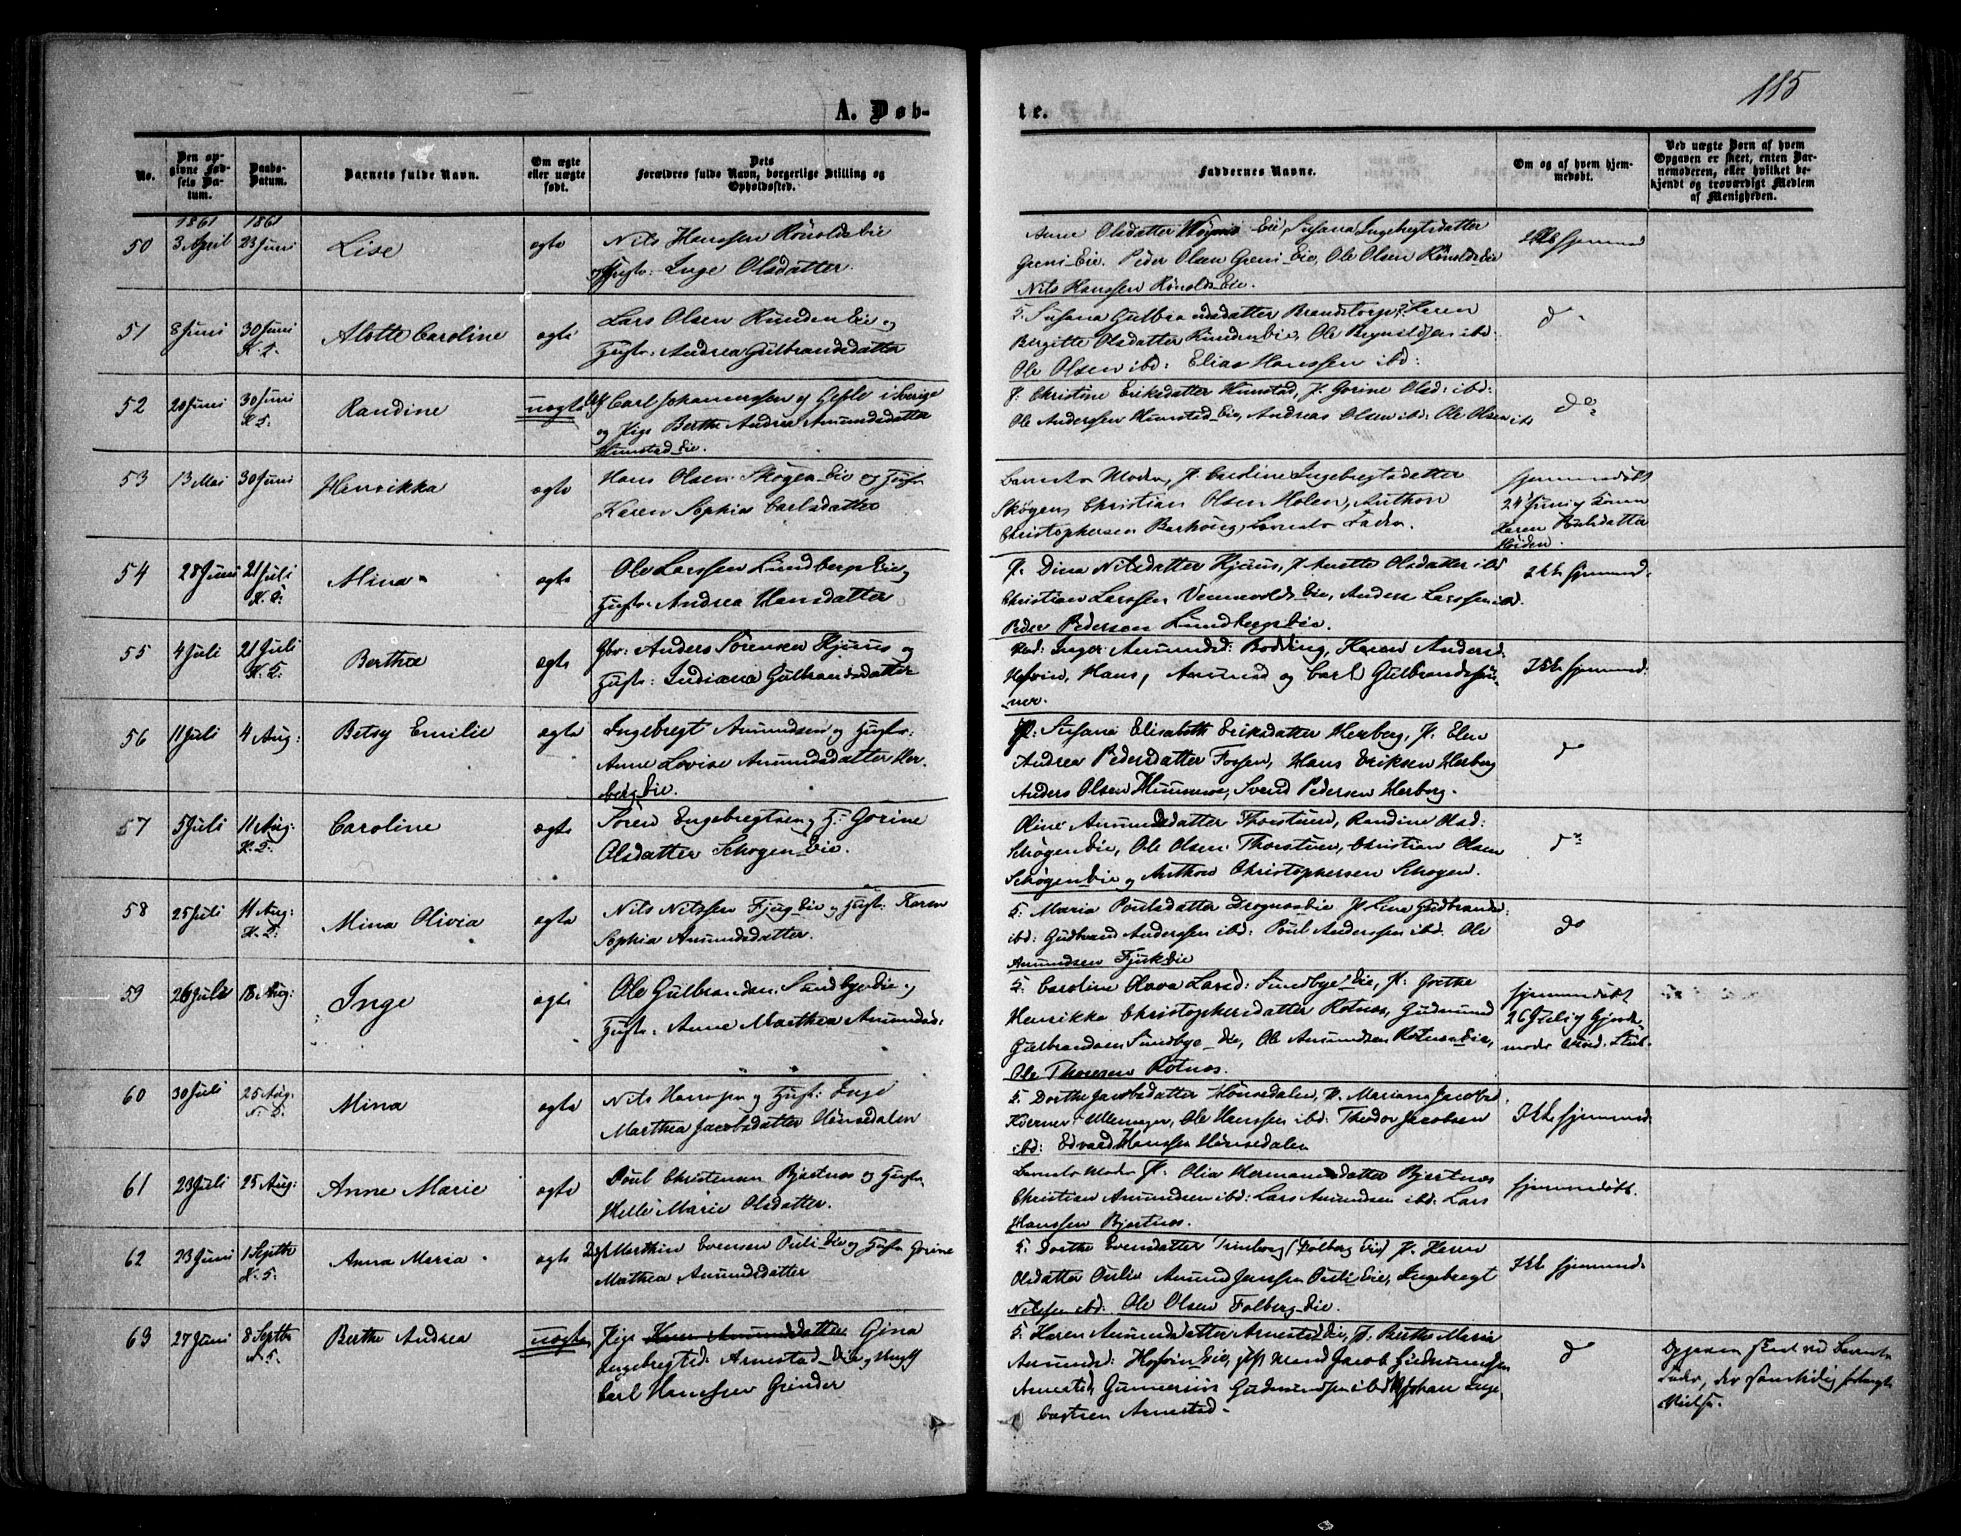 115
A. Døb-
te.
No.
Den op-
givne Fød-
sels Da-
tum.
Daabs-
Datum.
Barnets fulde Navn.
Om ægte
eller uægte
født.
Dets
Forældres fulde Navn, borgerlige Stilling og
Opholdssted.
Faddernes Navne.
Om og af hvem hjem-
medøbt.
Ved uægte Børn af hvem
Opgaven er skeet, enten Bar-
nemoderen, eller hvilket be-
kjendt og troværdigt Medlem
af Menigheden.
1861 1861
50 3 April 23 Juni Lise ægte Nils Hanssen Rönolds Eie
og Hustr: Inge Olsdatter.
Anne Olsdatter Eie, Susana Ingebregtsdatter
Greni-Eie. Peder Olsen Greni-Eie, Ole Olsen Rönolds Eie
Nils Hanssen Rönolds Eie.
51 8 Juni 30 Juni Alette Caroline ægte Lars Olsen Runden Eie og
Hustr: Andrea Gulbrandsdatter
Susana Gulbrandsdatter Brandstorp, Karen
Bergitte Olsdatter Runden Eie, Ole ibd:
Ole Olsen ibd: Elias Hanssen ibd:
52 20 Juni 30 Juni Randine uægte Carl Johannssen af Gefle i Sverige
og Pige Berthe Andrea Amundsdatter
Hunstad Eie.
P. Christine Eriksdatter Hunstad, P. Gorine Olsd: ibd:
Ole Anderssen Hunstad Eie, Andreas Olsen ibd: Ole Olsen ibd
53 13 Mai 30 Juni Henrikka ægte Hans Olsen Skøgen Eie og Hustr
Karen Sophie Carlsdatter
Barnets Moder, P. Caroline Ingebregtsdatter
Skøgen, Christian Olsen Holen, Anthon
Christophersen Berhoug, Barnets Fader.
hjemmedøbt
24 Juni af
Karen Poulsdatter
54 28 Juni 21 Juli Mina ægte Ole Larssen Lundbergs Eie og
Hustr: Andrea Hansdatter
P. Dina Nilsdatter Hjæus, P. Anette Olsdatter ibd
Christian Larssen Vennevolds Eie, Anders Larssen ibd.
Peder Pedersen Lundbergs Eie.
ikke hjemmed:
55 4 Juli 21 Juli Berthe ægte Gbr: Anders Sørensen Hjæus og
Hustr: Indiana Gulbrandsdatter
Inger Amundsd: Bødding, Karen Andersd.
Hofvin, Hans, Amund og Carl Gulbrandssøn-
ner.
Ikke hjemmed:
56 11 Juli 4 Aug: Betsy Emilie ægte Ingebregt Amundsen og Hustr:
Anne Lovise Amundsdatter Her-
berg Eie.
P. Susane Elisabeth Eriksdatter Herberg, P. Elen
Andrea Pedersdatter Fossen, Hans Eriksen Herberg
Anders Olsen, Svend Pedersen Herberg.
57 5 Juli 11 Aug: Caroline ægte Søren Engebregtsen og H: Gorine
Olsdatter Schøgen Eie.
Oline Amundsdatter Thorstuen, Randine Olsd:
Schøgen Eie, Ole Olsen Thorstuen, Christian Olsen
Schøgen Eie og Anthon Christophersen Schøgen.
58 25 Juli 11 Aug: Mina Olivia ægte Nils Nilssen Fjug Eie og Hustr: Karen
Sophia Amundsdatter.
Maria Poulsdatter Drognes Eie P. Lena Gudbrandsd:
ibd: Gudbrand Anderssen ibd: Poul Anderssen ibd. Ole
Amundsen Fjuk Eie
do
59 26 Juli 18 Aug: Inge ægte Ole Gulbrandsen Sundby Eie og
Hustr: Anne Marthea Amundsd:
Caroline Olava Larsd: Sundbye Eie, P. Grethe
Henrikke Christophersdatter Rotnes, Gudmund
Gulbrandsen Sundbye Eie, Ole Amundsen Rotnes Eie,
Ole Thoresen Rotnes.
hjemmedøbt
26 Juli af Gjorde-
moder
60 30 Juli 25 Aug: Mina ægte Nils Hanssen og Hustr: Inge
Marthea Jacobsdatter Hönsedalen
Dorthe Jacobsdatter Hönsedalen, P. Mariane Jacobsd.
Ole Hanssen ibd: Theodor Jacobsen
ibd: Edvard Hanssen Hönsedalen
Ikke hjemmed:
61 23 Juli 25 Aug: Anne Marie ægte Poul Christensen Bjertnes og Hustr:
Helle Marie Olsdatter.
Barnets Moder P. Olia Hermansdatter Bjertnes
Christian Amundsen ibd: Lars Amundsen ibd: Lars
Hanssen Bjertnes.
hjemmedøbt.
62 23 Juni 1 Septbr Anna Maria ægte Marthin Evensen Puli Eie og Hustr Gorine
Mathea Amundsdatter
Dorthe Evensdatter P. Karen
Olsdatter Puli, Amund Janssen Puli Eie, Ingebregt
Nilssen ibd: Ole Olsen Folberg Eie.
Ikke hjemmed:
63 27 Juni 8 Septbr Berthe Andrea uægte Pige Karen Amundsdatter Gina
Ingebregtsd: Arnestad Eie og Ungk
Carl Hanssen Grinder
Karen Amundsdatter Arnestad Eie, P. Berthe Maria
Amundsd: Hofvin Eie, gift Mand Jacob Gudmundsen
Arnestad, Gunnerius Gudmundsen ibd: Johan Inge-
bregtsen Arnestad.
Opgaven skeet ved Barnets
Fader, der samtidig